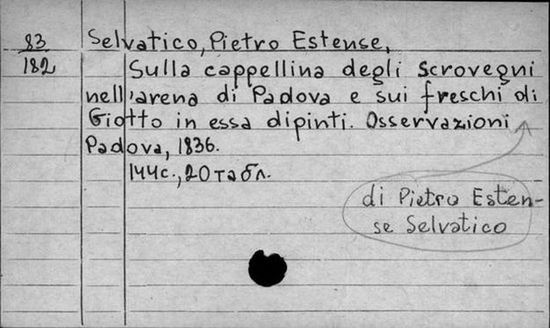 83
182
Selvatico, Pietro Estense,
Sulla cappellina degli scrovegni
nell'arena di Padova e sui freschi di
Giotto in essa dipinti. Osservazioni
Padova, 1836.
144с., 20 табл.
di Pietro Esten-
se Selvatico